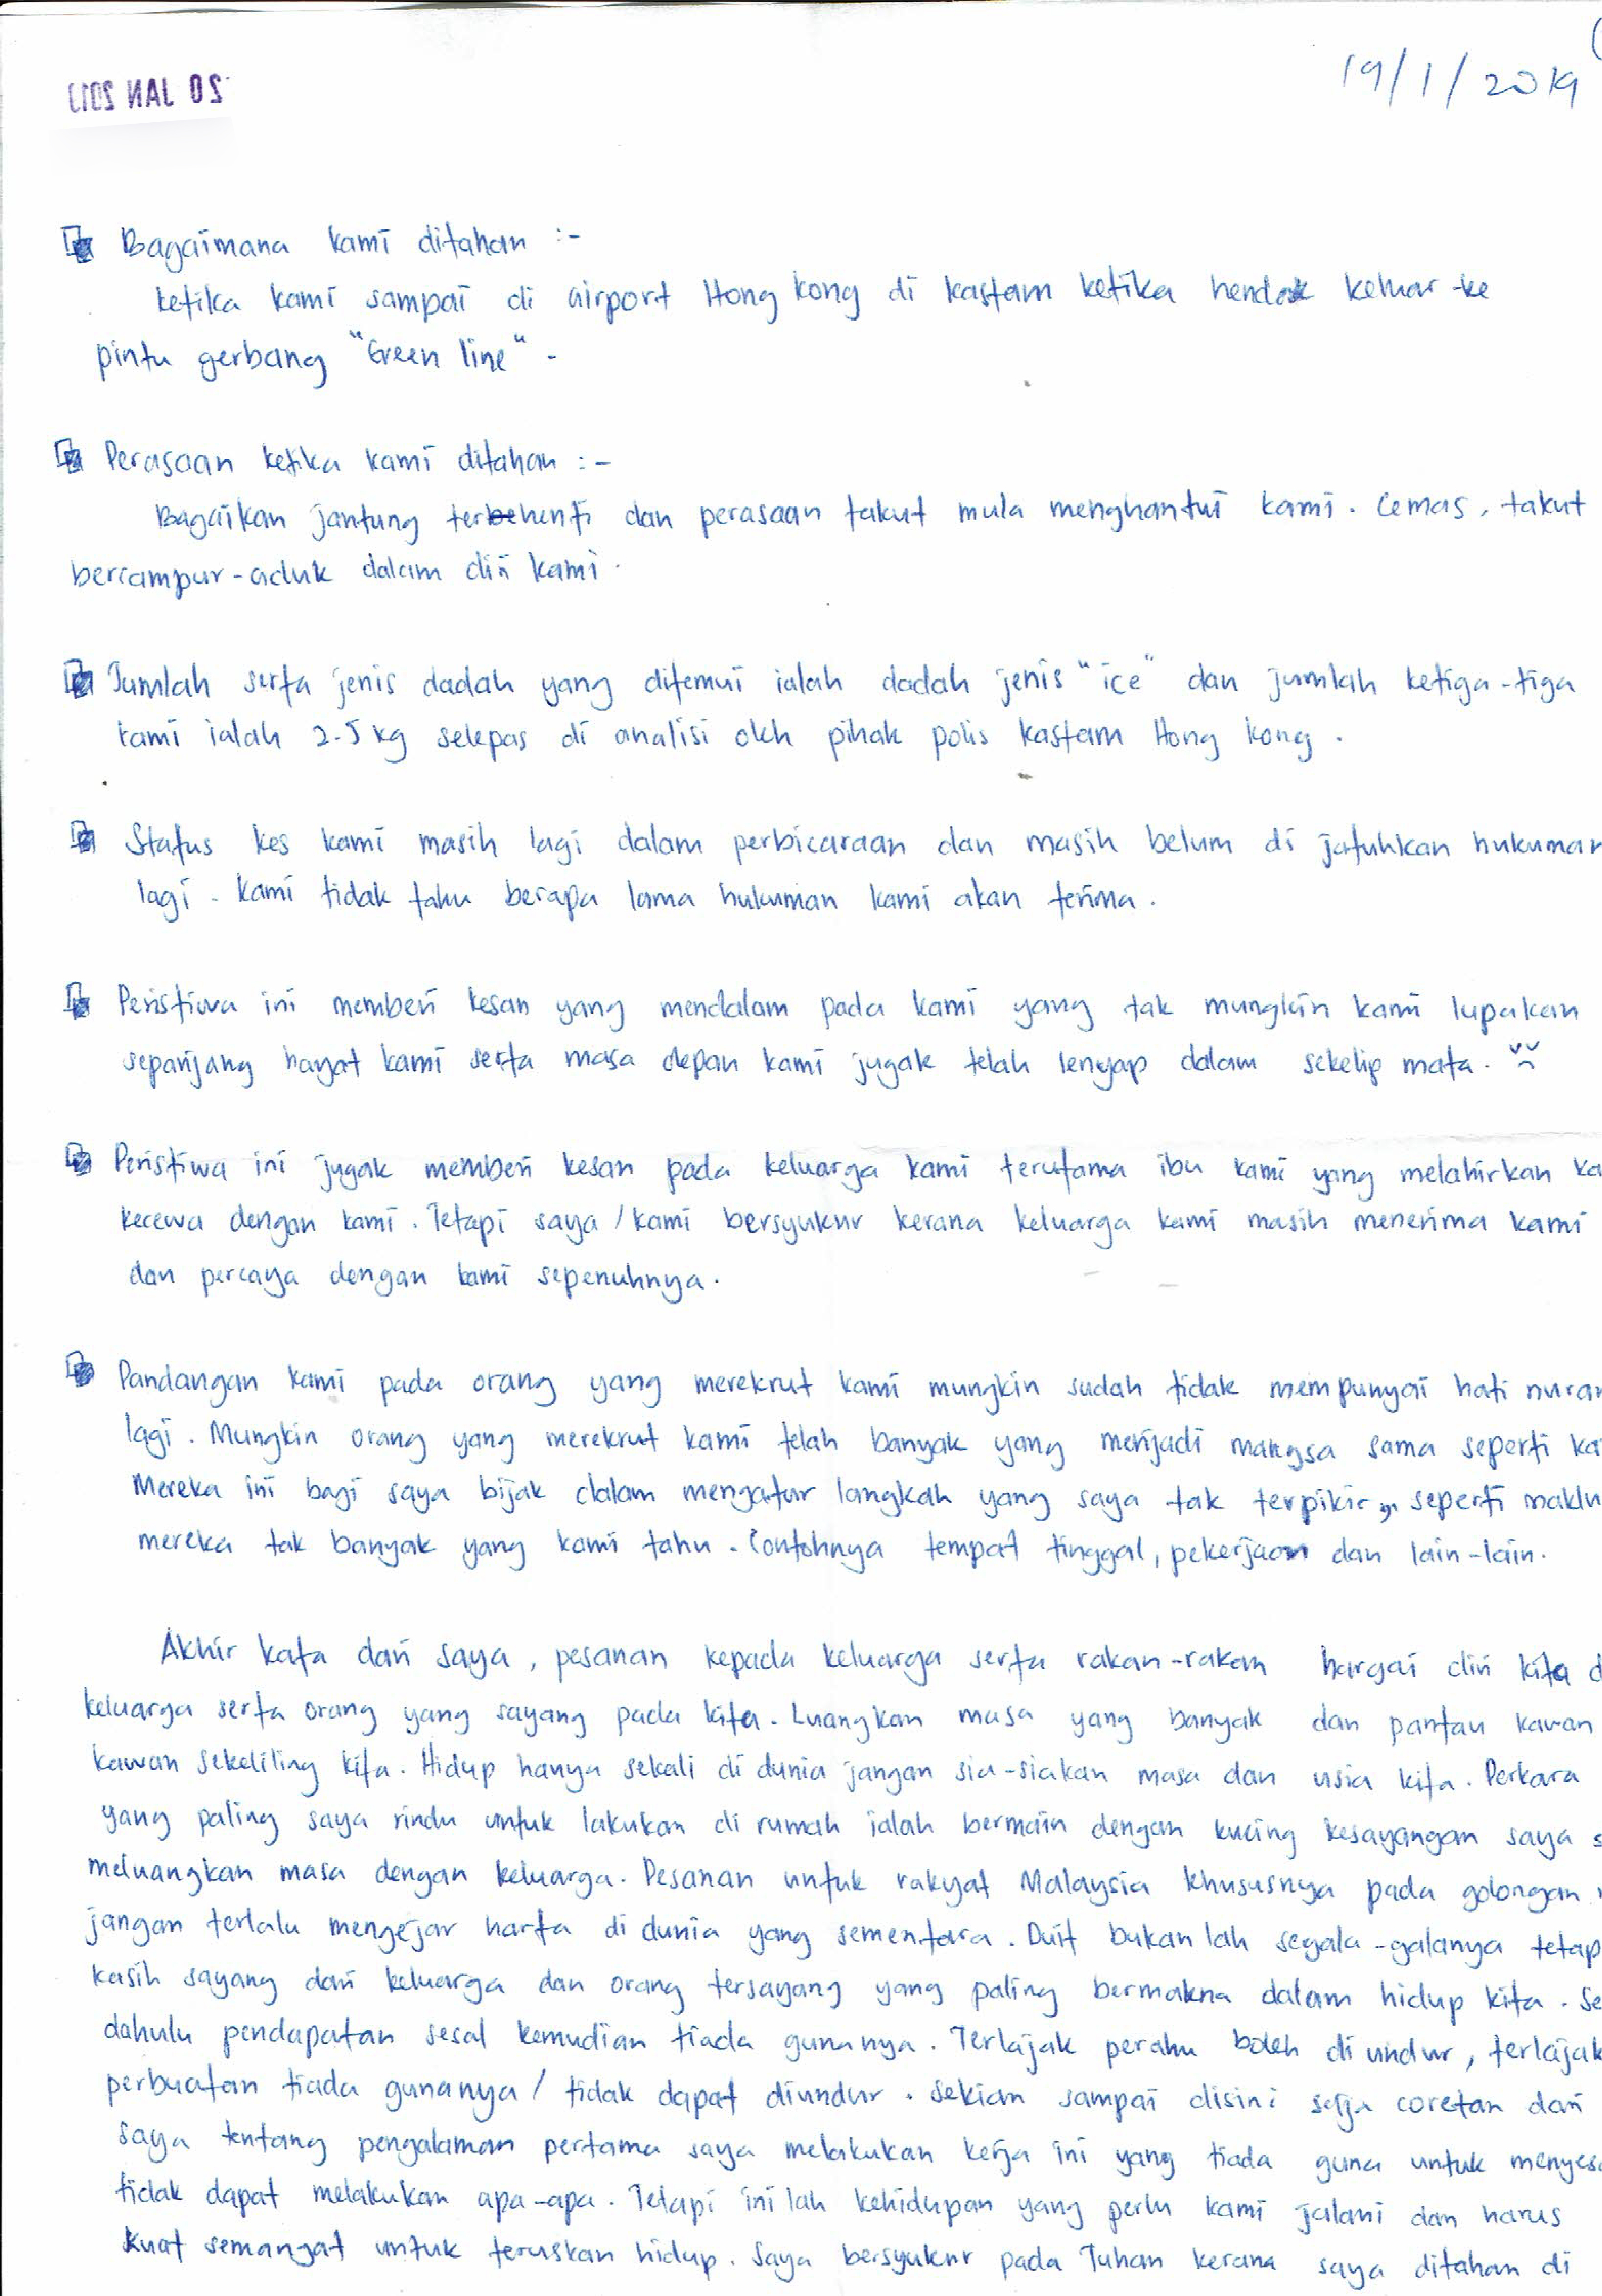 20 JAN 20
19/1/2019
Bagaimana kami ditahan :-
ketika kami sampai di airport Hong kong di kastam ketika hendak keluar ke
pintu gerbang "Green line" -
Perasaan ketika kami ditahan :-
Bagaikan jantung terhenti dan perasaan takut mula menghantui kami. Cemas, takut
bercampur-aduk dalam diri kami.
Jumlah serta jenis dadah yang ditemui ialah dadah jenis "ice" dan jumlah ketiga-tiga
kami ialah 2.5 kg selepas di analisi oleh pihak polis kastam Hong kong.
Status kes kami masih lagi dalam perbicaraan dan masih belum di jatuhkan hukuman
lagi. Kami tidak tahu berapa lama hukuman kami akan terima.
Peristiwa ini memberi kesan yang mendalam pada kami yang tak mungkin kami lupakan
sepanjang hayat kami serta masa depan kami jugak telah lenyap dalam sekelip mata.
Peristiwa ini jugak memberi kesan pada keluarga kami terutama ibu kami yang melahirkan ka
kecewa dengan kami. Tetapi saya / kami bersyukur kerana keluarga kami masih menerima kami
dan percaya dengan kami sepenuhnya.
Pandangan kami pada orang yang merekrut kami mungkin sudah tidak mempunyai hati nuran
lagi. Mungkin orang yang merekrut kami telah banyak yang menjadi mangsa sama seperti ka
Mereka ini bagi saya bijak dalam mengatur langkah yang saya tak terpikir, seperti maklu
mereka tak banyak yang kami tahu. Contohnya tempat tinggal, pekerjaan dan lain-lain.
Akhir kata dari saya, pesanan kepada keluarga serta rakan-rakan hargai diri kita d
keluarga serta orang yang sayang pada kita. Luangkan masa yang banyak dan pantau kawan
kawan sekeliling kita. Hidup hanya sekali di dunia jangan sia-siakan masa dan usia kita. Perkara
yang paling saya rindu untuk lakukan di rumah ialah bermain dengan kucing kesayangan saya s
meluangkan masa dengan keluarga. Pesanan untuk rakyat Malaysia khususnya pada golongan
jangan terlalu mengejar harta di dunia yang sementara. Duit bukan lah segala-galanya tetap
kasih sayang dari keluarga dan orang tersayang yang paling bermakna dalam hidup kita. Se
dahulu pendapatan sesal kemudian tiada gunanya. Terlajak perahu boleh di undur, terlajak
perbuatan tiada gunanya / tidak dapat diundur. Sekian sampai disini saja coretan dari
saya tentang pengalaman pertama saya melakukan kerja ini yang tiada guna untuk menyesa
tidak dapat melakukan apa-apa. Tetapi ini lah kehidupan yang perlu kami jalani dan harus
kuat semangat untuk teruskan hidup. Saya bersyukur pada Tuhan kerana saya ditahan di